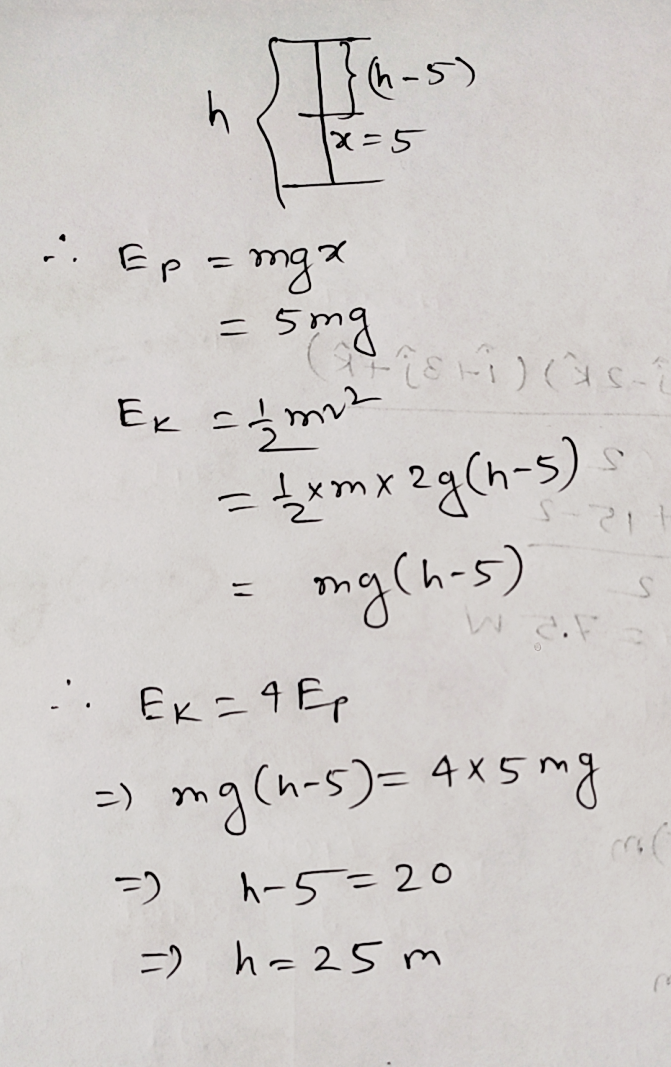 (h-5)
h
x=5
∴ Ep = mgx
= 5mg
EK = 1/2 mv²
= 1/2 × m × 2g(h-5)
= mg(h-5)
∴ EK = 4 Ep
=> mg(h-5) = 4×5 mg
=> h-5 = 20
=> h = 25 m